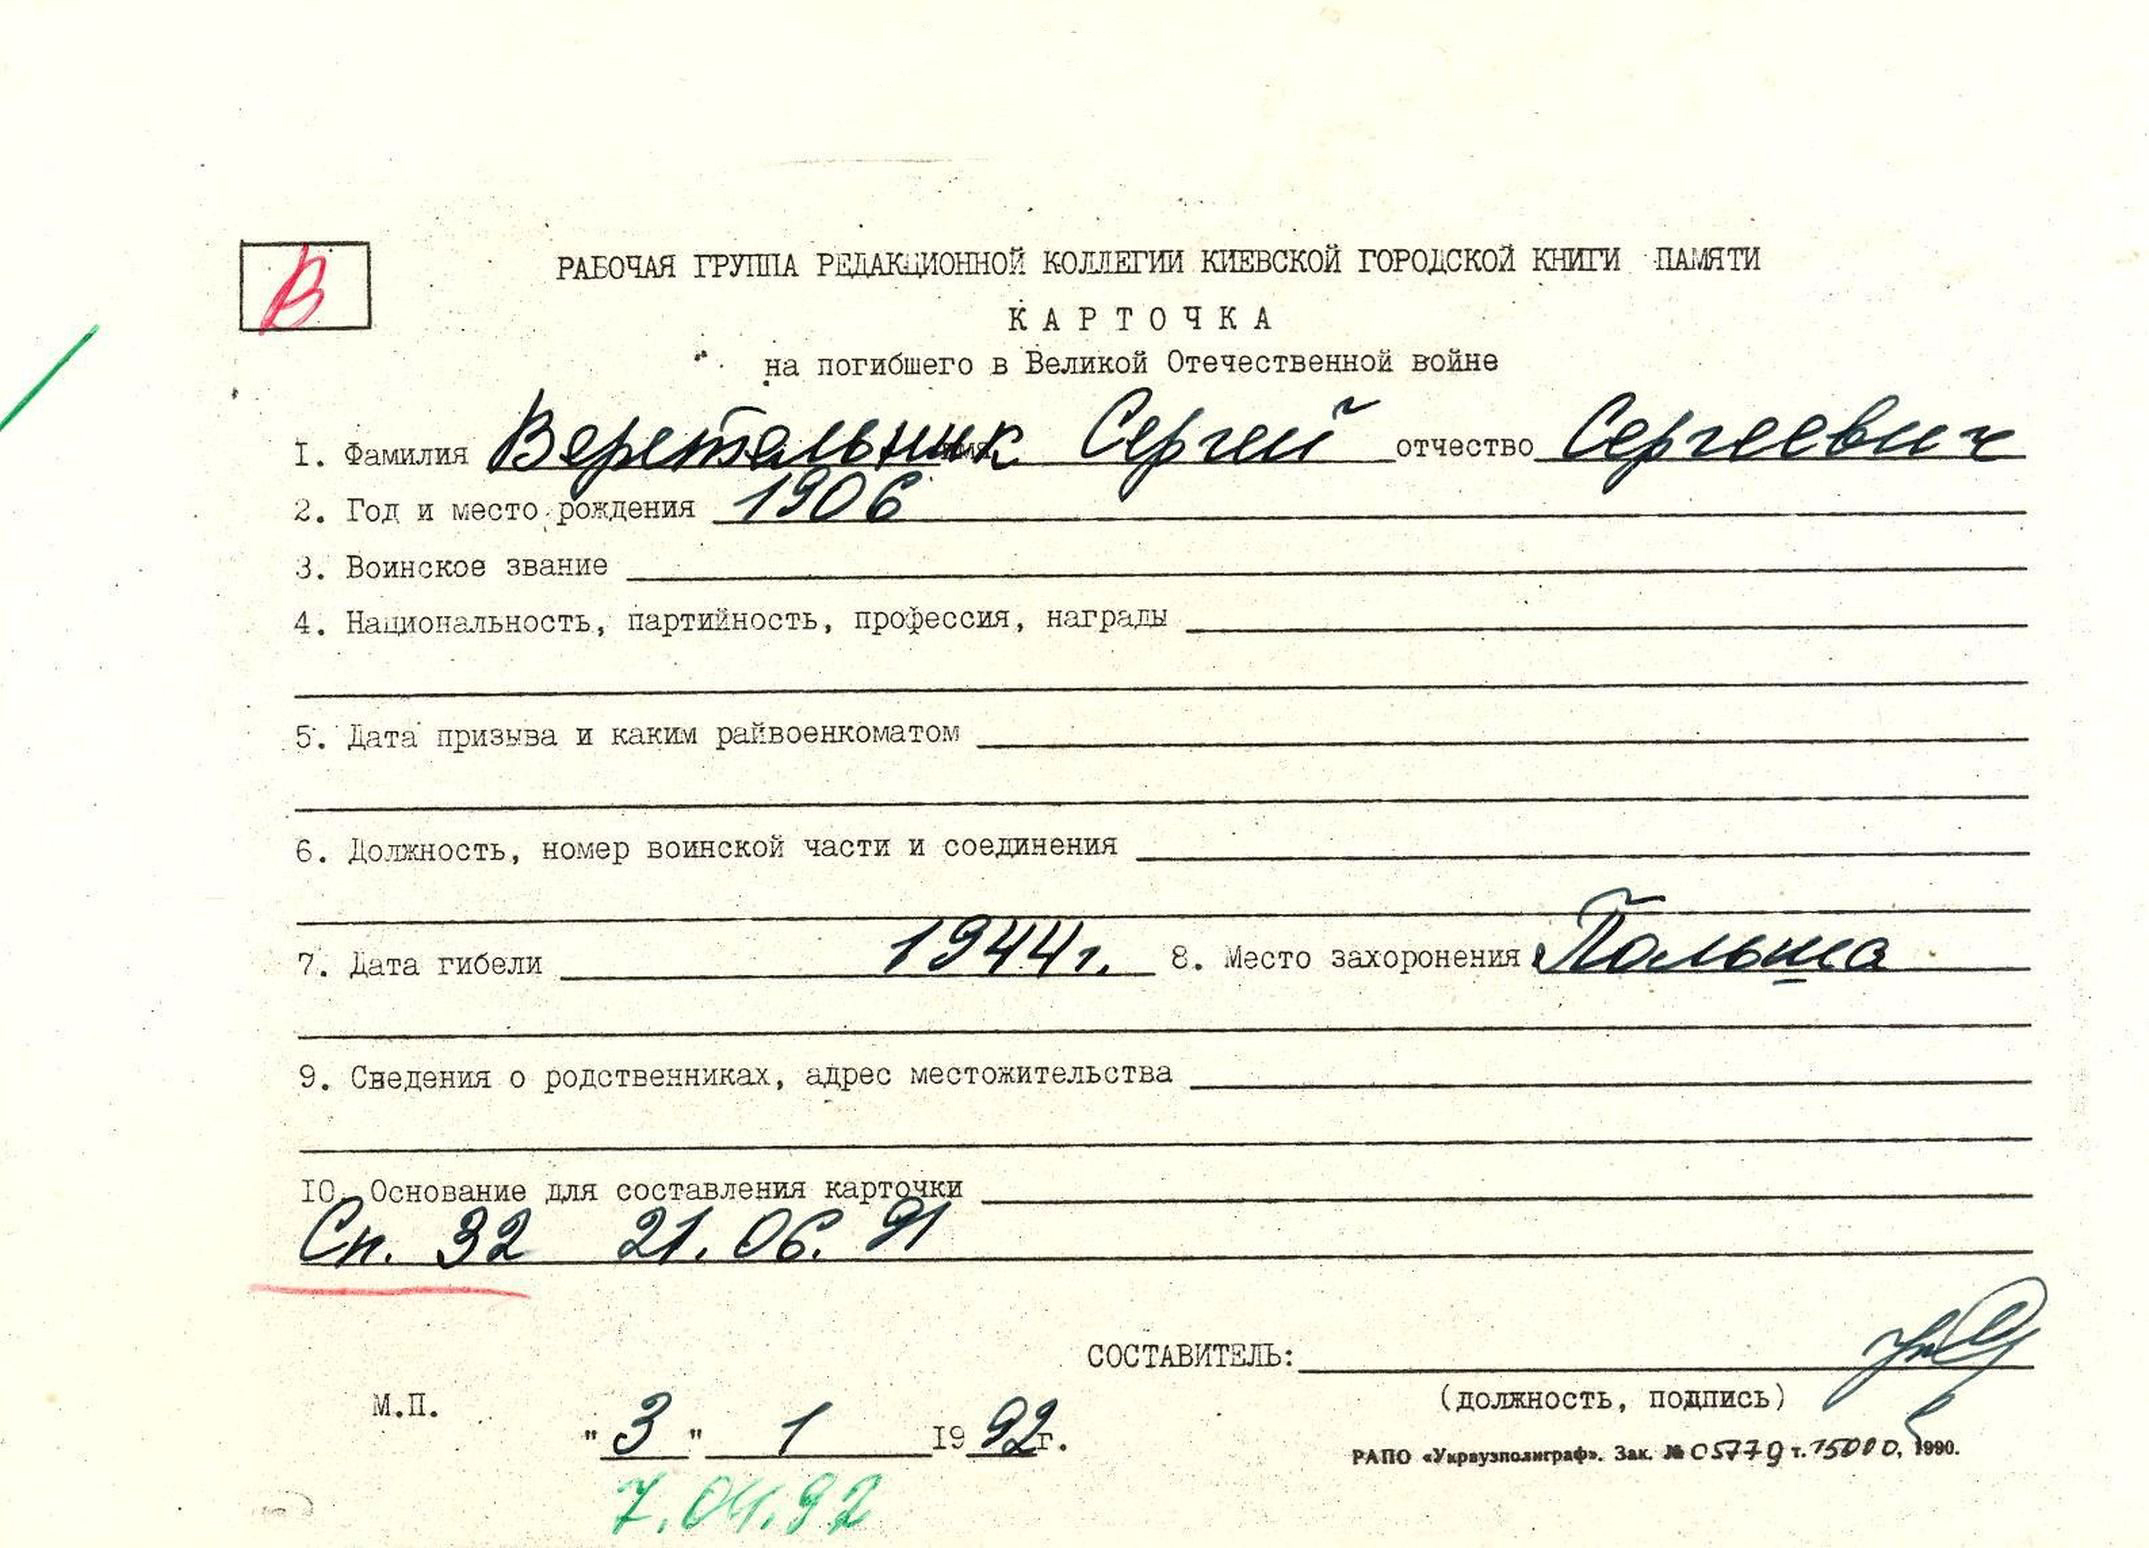 В
РАБОЧАЯ ГРУППА РЕДАКЦИОННОЙ КОЛЛЕГИИ КИЕВСКОЙ ГОРОДСКОЙ КНИГИ ПАМЯТИ
КАРТОЧКА
на погибшего в Великой Отечественной войне
I. Фамилия Веретельник имя Сергей отчество Сергеевич
2. Год и место рождения 1906
3. Воинское звание
4. Национальность, партийность, профессия, награды
5. Дата призыва и каким райвоенкоматом
6. Должность, номер воинской части и соединения
7. Дата гибели 1944г. 8. Место захоронения Польша
9. Сведения о родственниках, адрес местожительства
IO. Основание для составления карточки
Сп. 32 21.06.91
СОСТАВИТЕЛЬ:
(должность, подпись)
М.П.
"3" 1 1992г.
РАПО «Укрвузполиграф». Зак. № 05779 т. 15000, 1990.
7.04.92